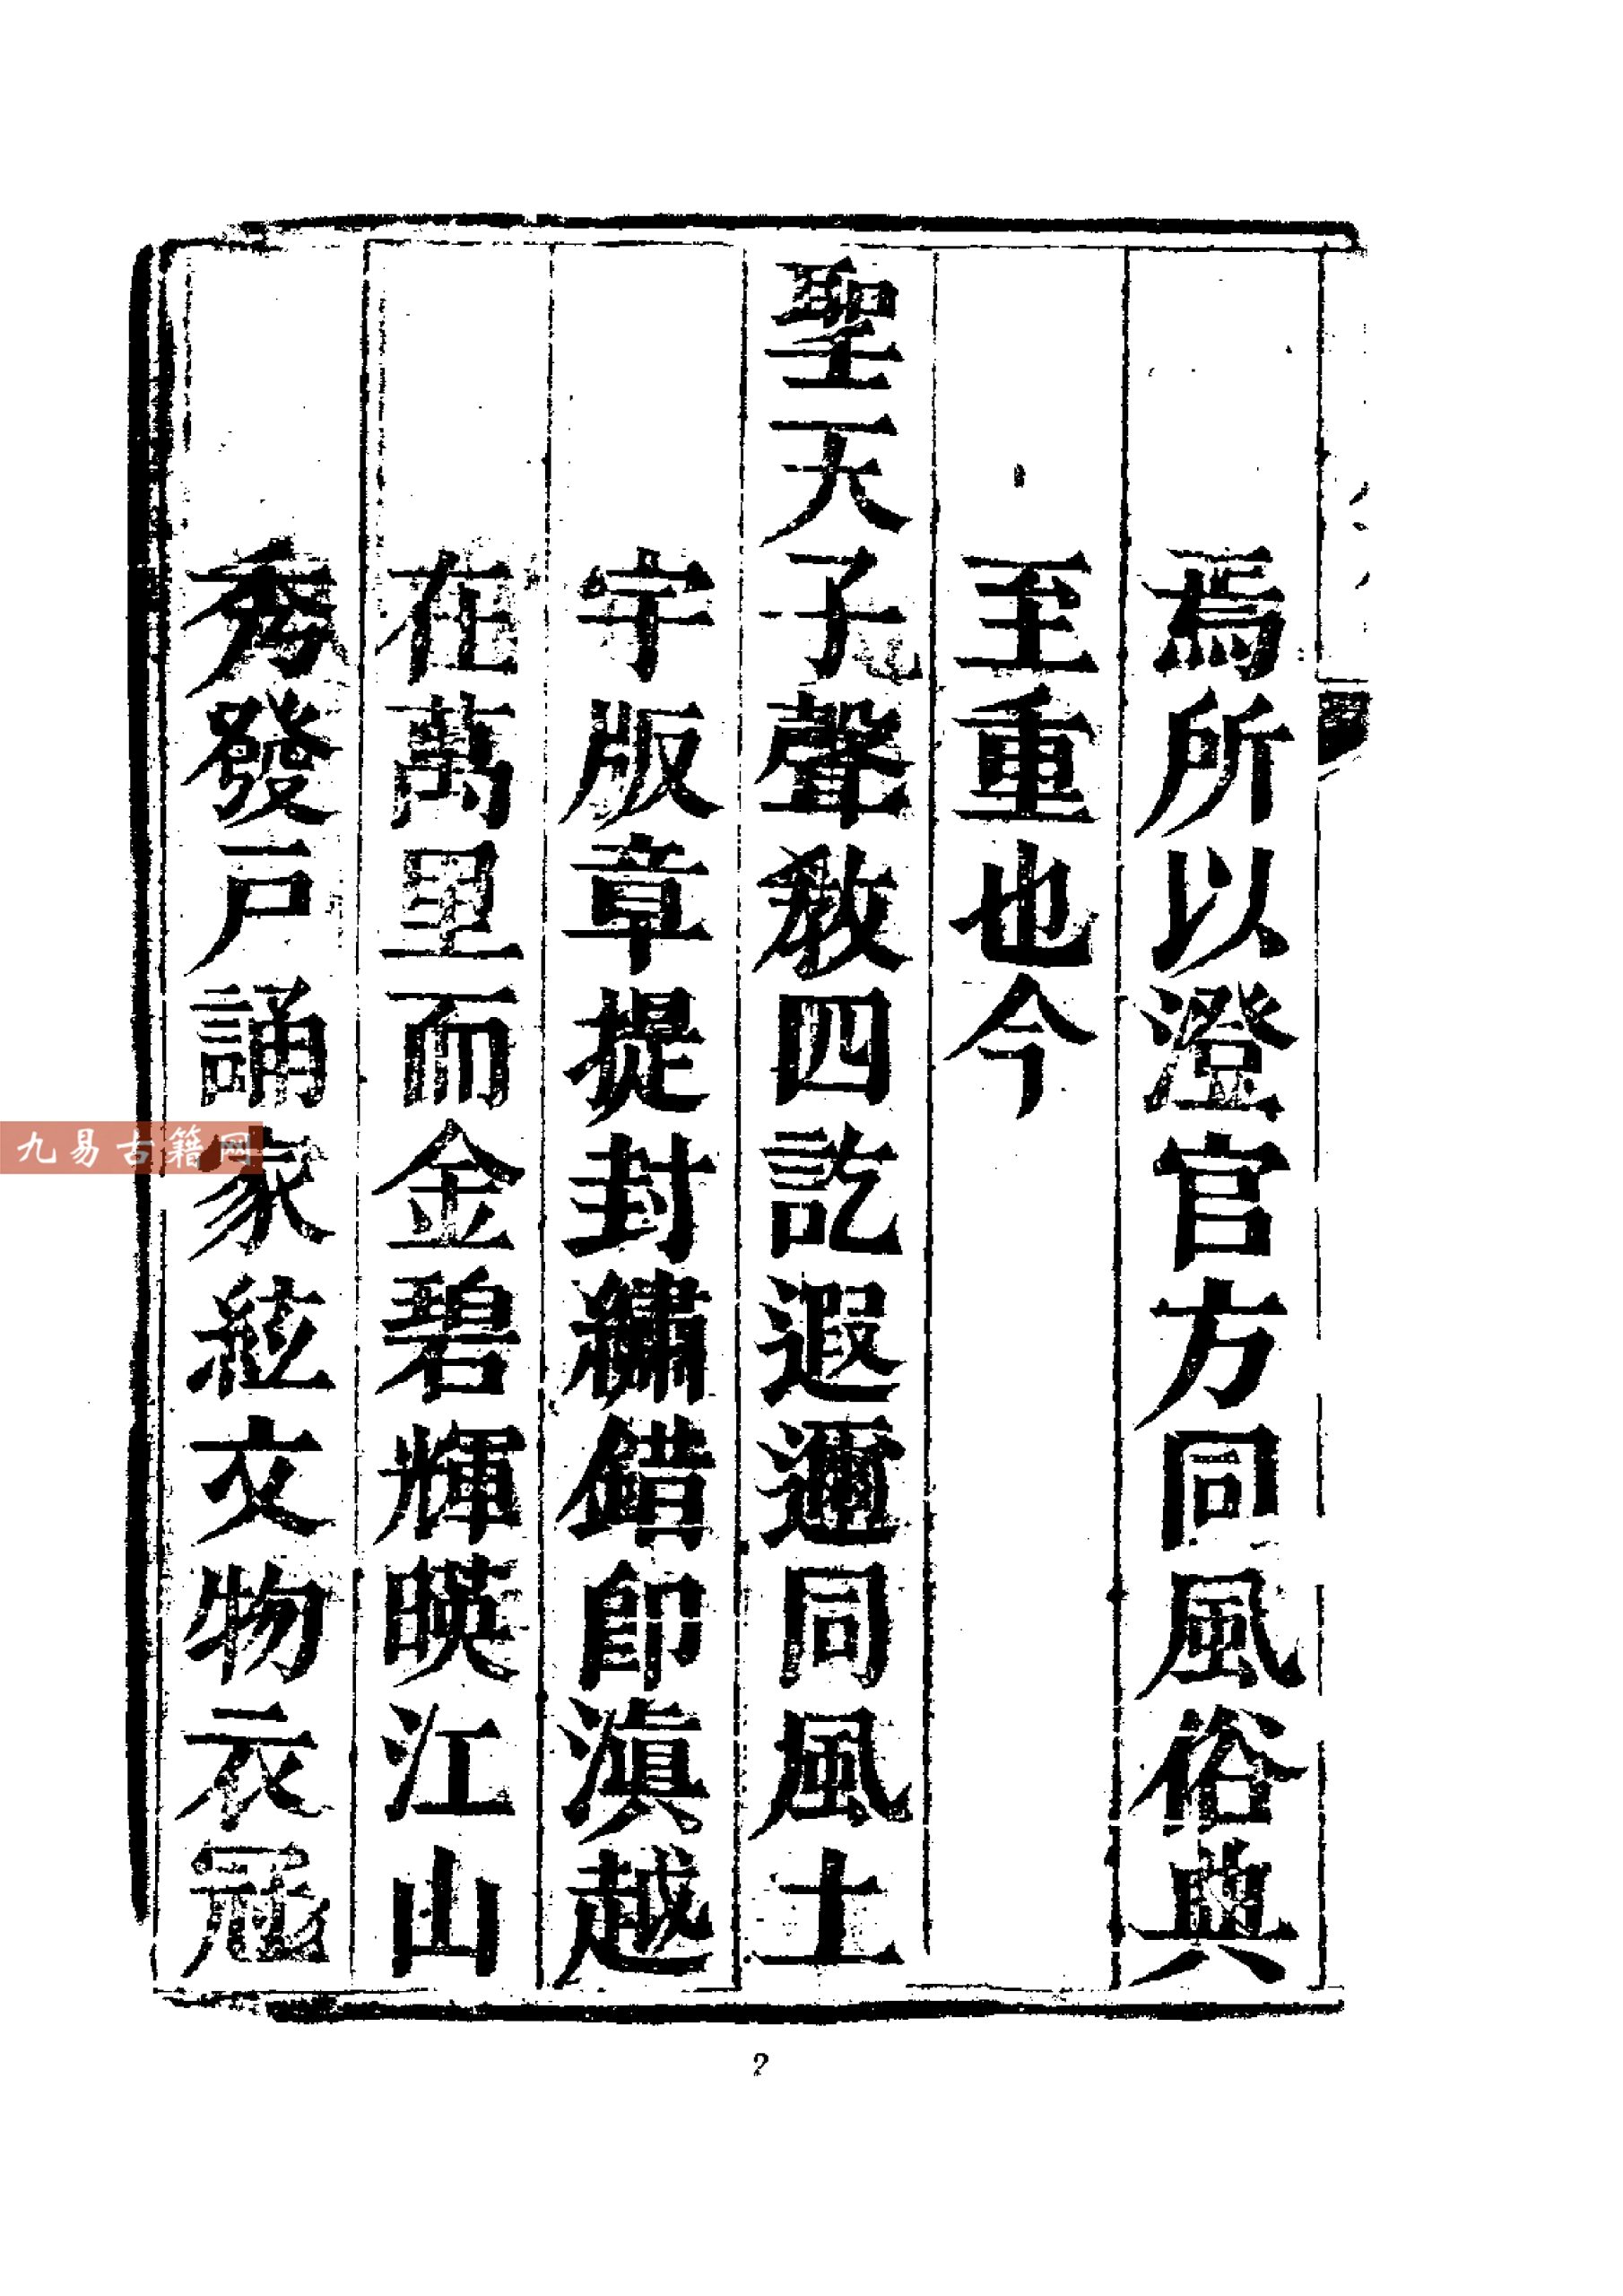 焉所以澄官方同風俗典
至重也今
聖天子聲教四訖遐邇同風土
宇版章提封繡錯卽滇越
在萬里而金碧輝暎江山
秀發戸誦家絃文物衣冠
九易古籍网
2